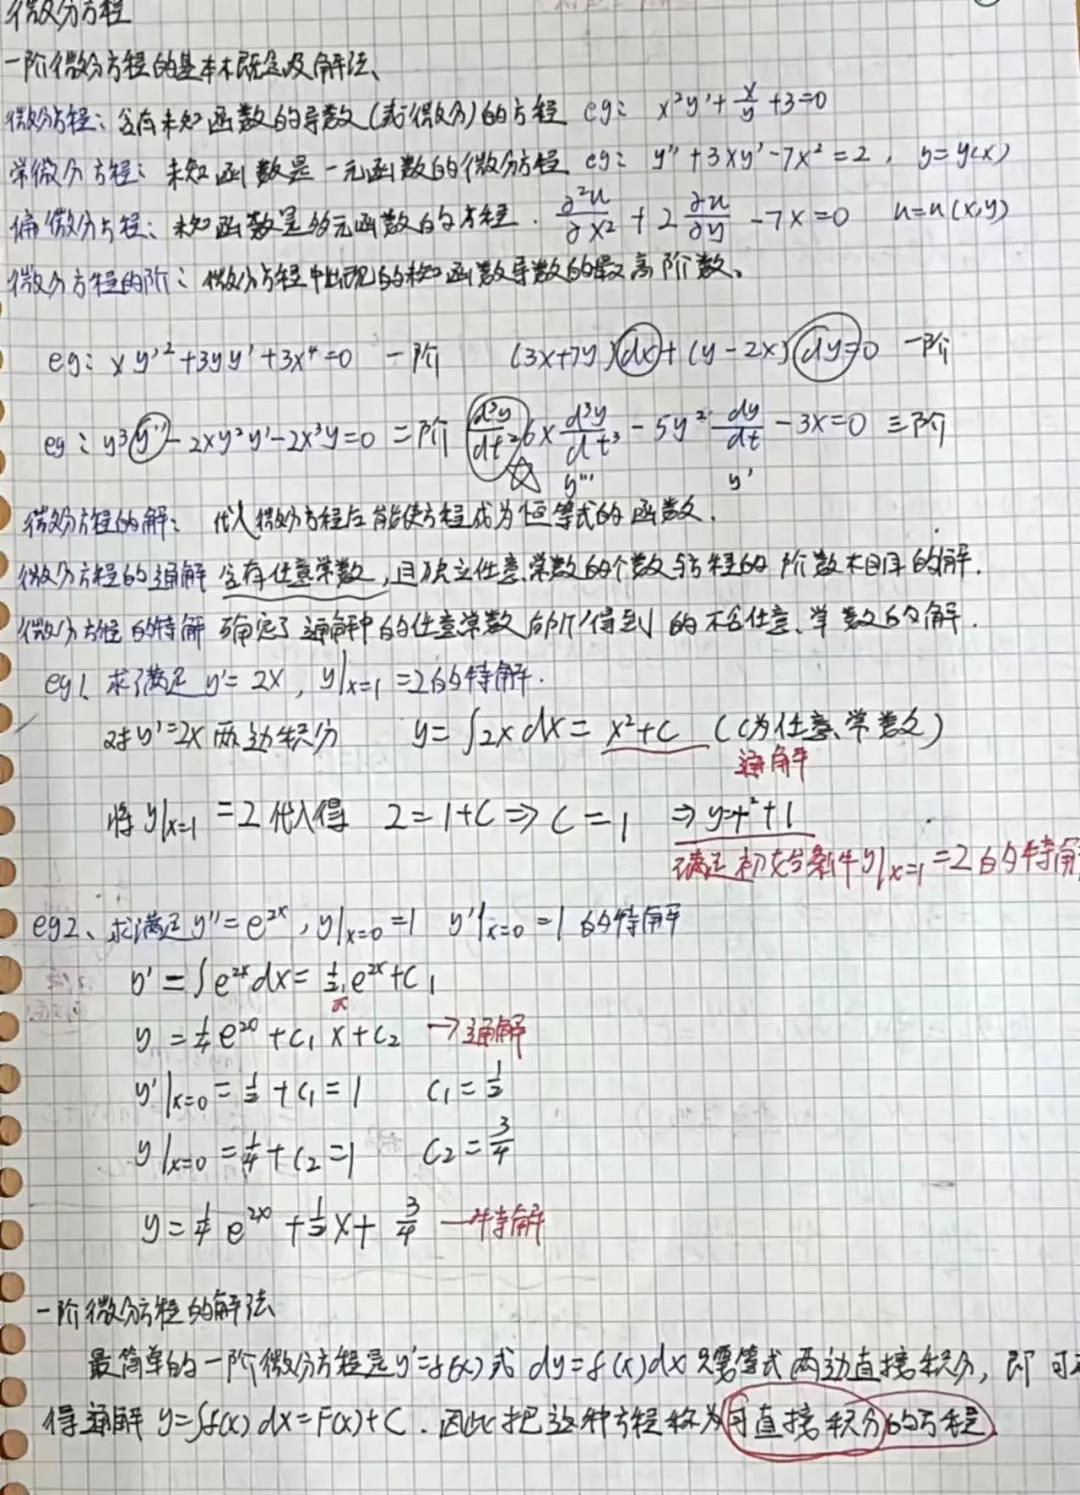 微分方程
一阶微分方程的基本概念及解法、
微分方程：含有未知函数的导数(或微分)的方程 eg: x²y'+x/y+3=0
常微分方程：未知函数是一元函数的微分方程 eg: y''+3xy'-7x²=2, y=y(x)
偏微分方程：未知函数是多元函数的方程. ∂²u/∂x²+2∂u/∂y-7x=0 u=u(x,y)
微分方程的阶：微分方程中出现的未知函数导数的最高阶数。
eg: xy'²+3yy'+3x⁴=0 一阶 (3x+7y)dx+(y-2x)dy=0 一阶
eg: y³y''-2xy²y'-2x³y=0 二阶 d²y/dt² 6x d³y/dt³-5y² dy/dt-3x=0 三阶
☆ y''' y'
微分方程的解：代入微分方程后能使方程成为恒等式的函数.
微分方程的通解 含有任意常数,且独立任意常数的个数与方程的阶数相同的解.
微分方程的特解 确定了通解中的任意常数后所得到的不含任意常数的解.
eg1. 求满足y'=2x, y|x=1=2的特解.
对y'=2x两边积分 y=∫2xdx=x²+C (C为任意常数)
通解
将y|x=1=2代入得 2=1+C⇒C=1 ⇒y=x²+1
满足初始条件y|x=1=2的特解
eg2、求满足y''=e²ˣ, y|x=0=1 y'|x=0=1的特解
y'=∫e²ˣdx=½e²ˣ+C₁
y=¼e²ˣ+C₁x+C₂ →通解
y'|x=0=½+C₁=1 C₁=½
y|x=0=¼+C₂=1 C₂=¾
y=¼e²ˣ+½x+¾ —特解
一阶微分方程的解法
最简单的一阶微分方程是y'=f(x)或dy=f(x)dx只要等式两边直接积分，即可
得通解y=∫f(x)dx=F(x)+C.因此把这种方程称为可直接积分的方程.